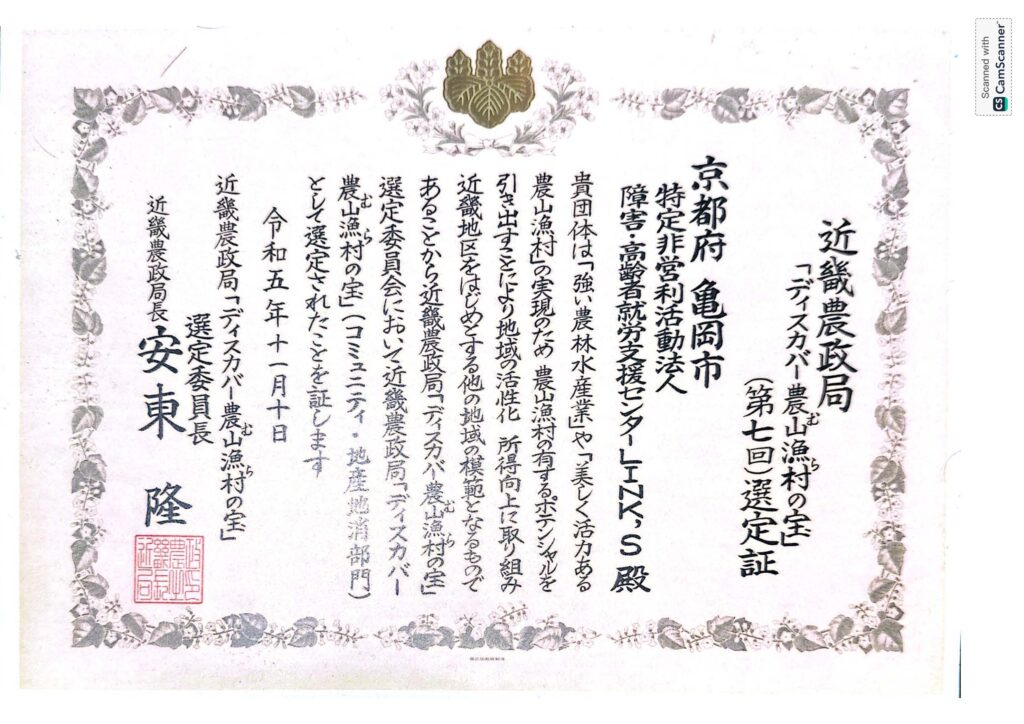 近畿農政局
「ディスカバー農山漁村の宝」
（第七回）選定証
京都府 亀岡市
特定非営利活動法人
障害・高齢者就労支援センターLINK,S 殿
貴団体は「強い農林水産業」や「美しく活力ある
農山漁村」の実現のため 農山漁村の有するポテンシャルを
引き出すことにより地域の活性化 所得向上に取り組み
近畿地区をはじめとする他の地域の模範となるもので
あることから近畿農政局「ディスカバー農山漁村の宝」
選定委員会において近畿農政局「ディスカバー
農山漁村の宝」（コミュニティ・地産地消部門）
として選定されたことを証します
令和五年十一月十日
近畿農政局「ディスカバー農山漁村の宝」
選定委員長
近畿農政局長 安東 隆
Scanned with
CS CamScanner